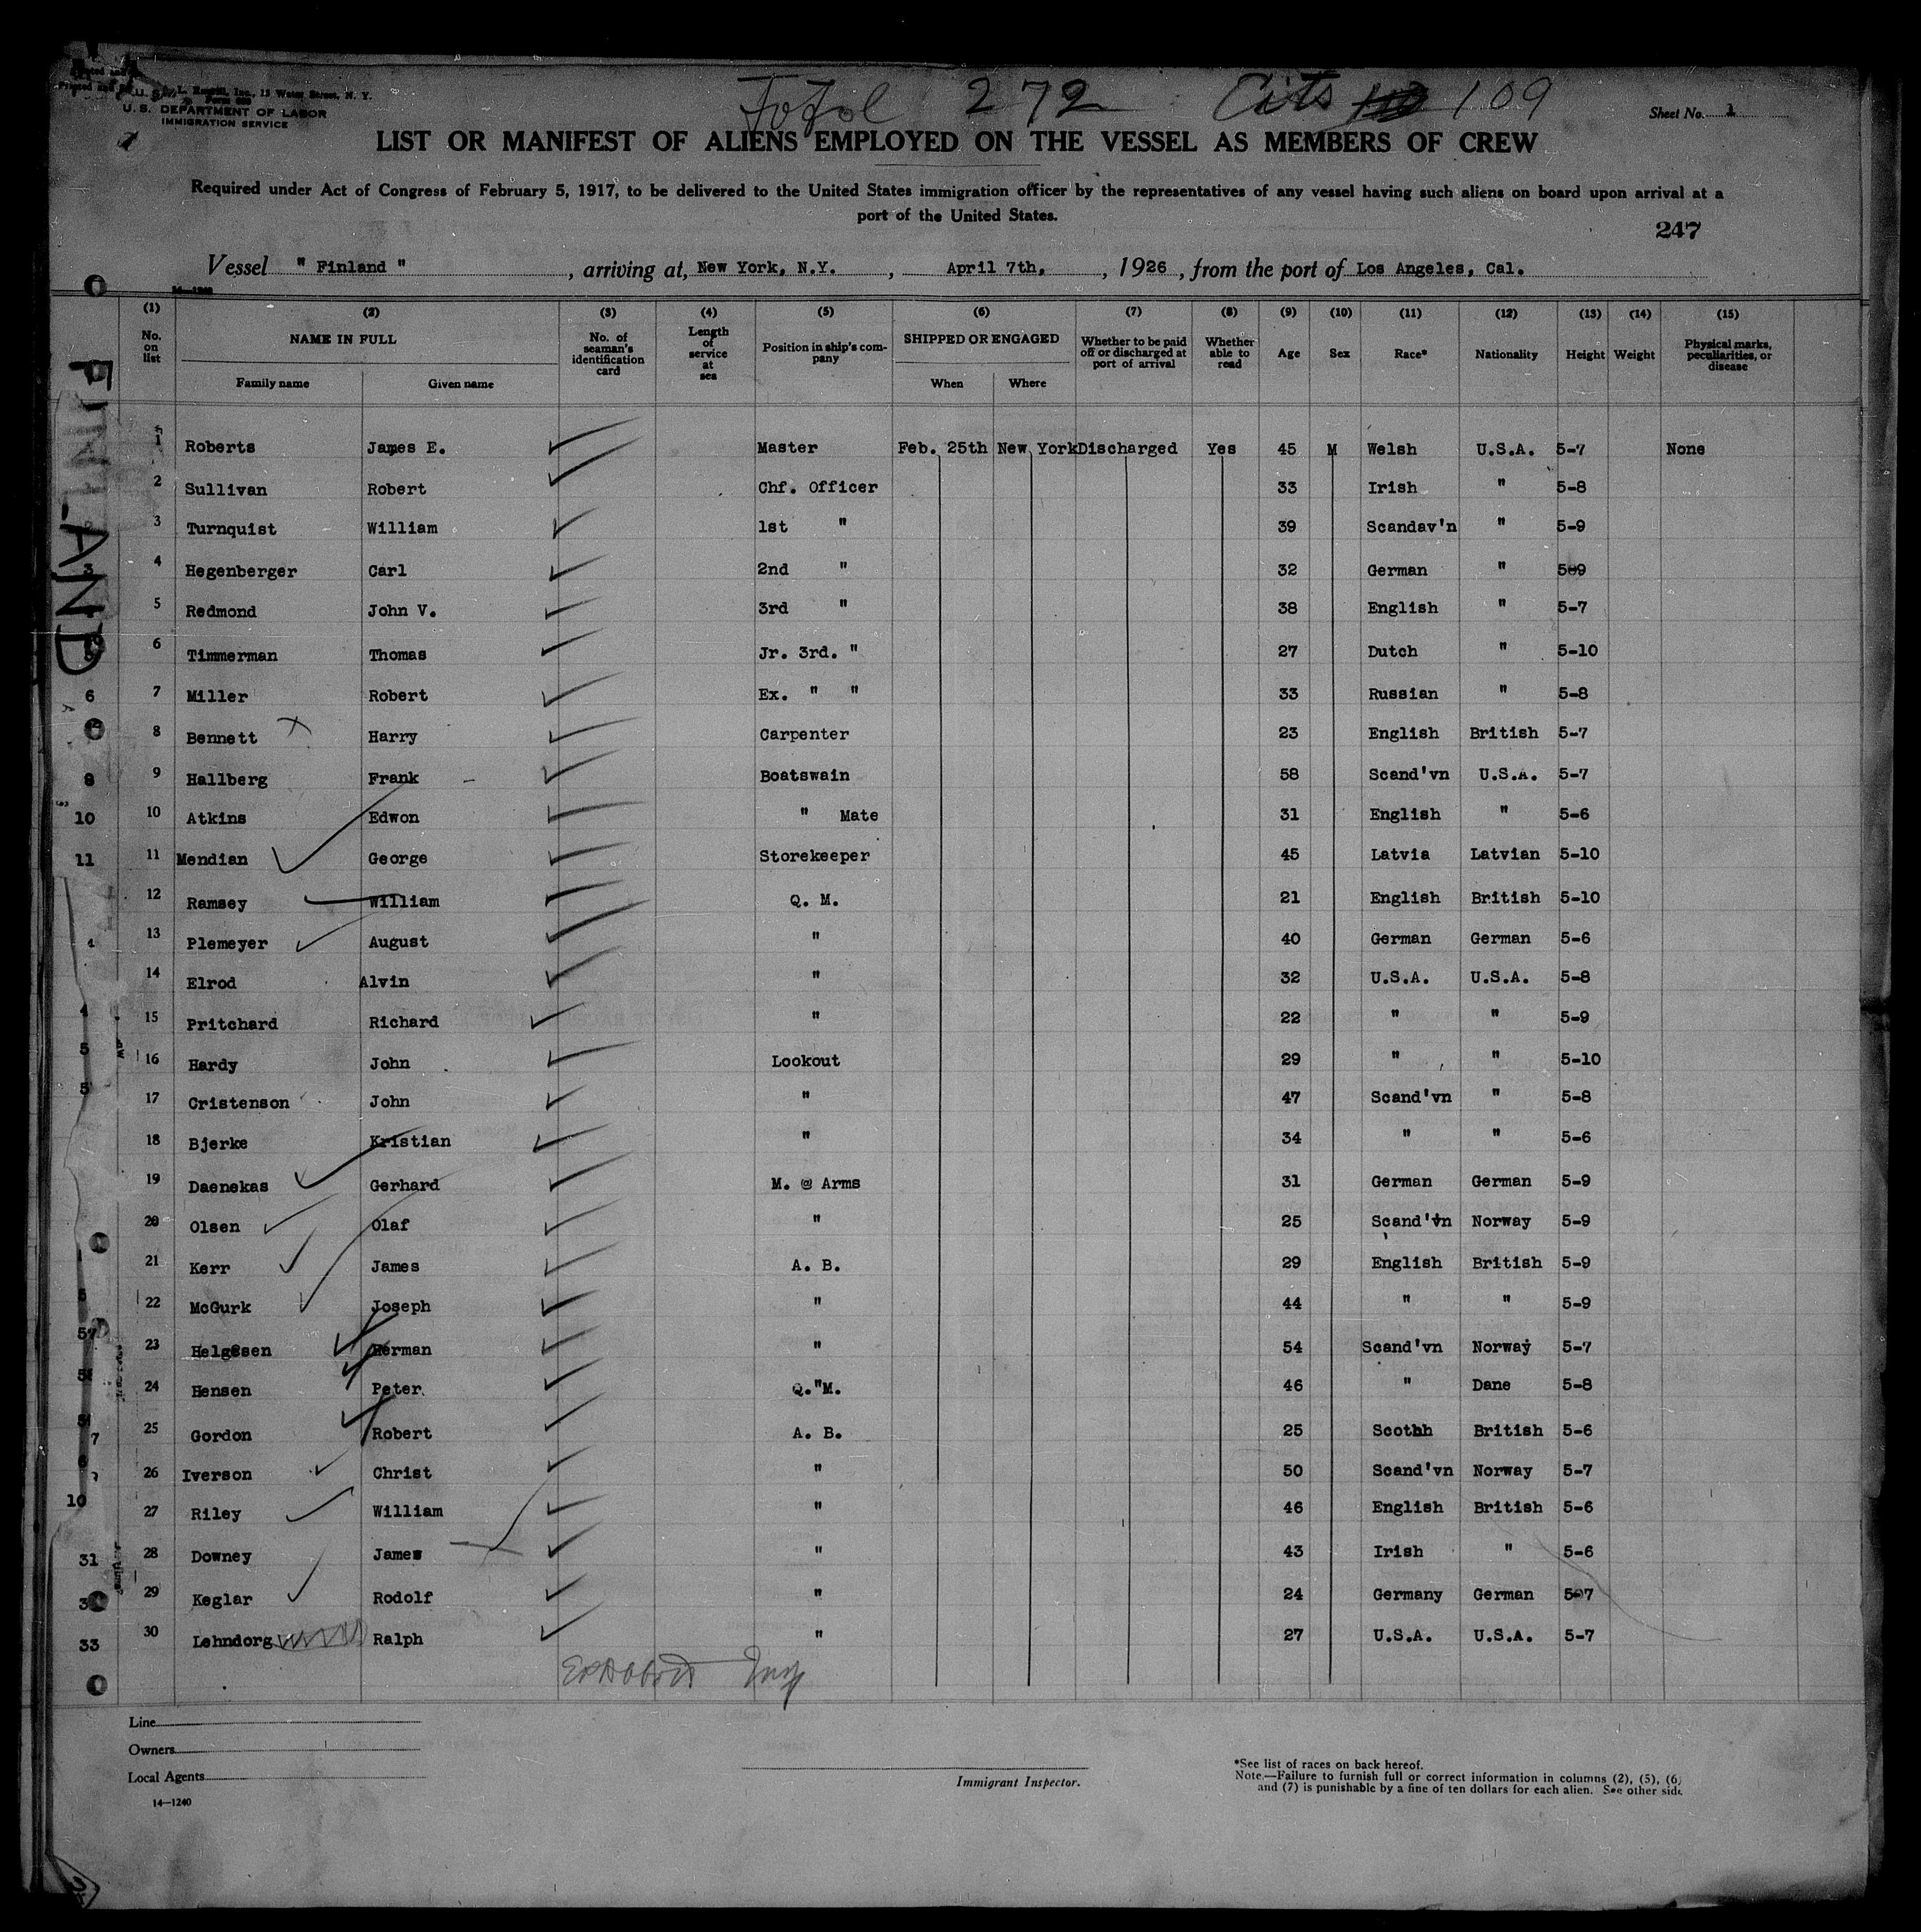 Total 272 Cits 109
U.S. DEPARTMENT OF LABOR
IMMIGRATION SERVICE
Sheet No. 1
LIST OR MANIFEST OF ALIENS EMPLOYED ON THE VESSEL AS MEMBERS OF CREW
Required under Act of Congress of February 5, 1917, to be delivered to the United States immigration officer by the representatives of any vessel having such aliens on board upon arrival at a
port of the United States.
247
Vessel " Finland ", arriving at, New York, N.Y., April 7th, , 1926, from the port of Los Angeles, Cal.
FINLAND
(1) (2) (3) (4) (5) (6) (7) (8) (9) (10) (11) (12) (13) (14) (15)
No. on list NAME IN FULL Family name Given name No. of seaman's identification card Length of service at sea Position in ship's company SHIPPED OR ENGAGED When Where Whether to be paid off or discharged at port of arrival Whether able to read Age Sex Race* Nationality Height Weight Physical marks, peculiarities, or disease
1 Roberts James E. Master Feb. 25th New York Discharged Yes 45 M Welsh U.S.A. 5-7 None
2 Sullivan Robert Chf. Officer 33 Irish " 5-8
3 Turnquist William 1st " 39 Scandav'n " 5-9
4 Hegenberger Carl 2nd " 32 German " 5-9
5 Redmond John V. 3rd " 38 English " 5-7
6 Timmerman Thomas Jr. 3rd. " 27 Dutch " 5-10
7 Miller Robert Ex. " " 33 Russian " 5-8
8 Bennett Harry Carpenter 23 English British 5-7
9 Hallberg Frank Boatswain 58 Scand'vn U.S.A. 5-7
10 Atkins Edwon " Mate 31 English " 5-6
11 Mendian George Storekeeper 45 Latvia Latvian 5-10
12 Ramsey William Q. M. 21 English British 5-10
13 Plemeyer August " 40 German German 5-6
14 Elrod Alvin " 32 U.S.A. U.S.A. 5-8
15 Pritchard Richard " 22 " " 5-9
16 Hardy John Lookout 29 " " 5-10
17 Cristenson John " 47 Scand'vn " 5-8
18 Bjerke Kristian " 34 " " 5-6
19 Daenekas Gerhard M. @ Arms 31 German German 5-9
20 Olsen Olaf " 25 Scand'vn Norway 5-9
21 Kerr James A. B. 29 English British 5-9
22 McGurk Joseph " 44 " " 5-9
23 Helgesen Herman " 54 Scand'vn Norway 5-7
24 Hensen Peter Q."M. 46 " Dane 5-8
25 Gordon Robert A. B. 25 Scothh British 5-6
26 Iverson Christ " 50 Scand'vn Norway 5-7
27 Riley William " 46 English British 5-6
28 Downey James " 43 Irish " 5-6
29 Keglar Rodolf " 24 Germany German 5-7
30 Lehndorg Ralph " 27 U.S.A. U.S.A. 5-7
Line
Owners
Local Agents
14—1240
Immigrant Inspector.
*See list of races on back hereof.
Note.—Failure to furnish full or correct information in columns (2), (5), (6)
and (7) is punishable by a fine of ten dollars for each alien. See other side